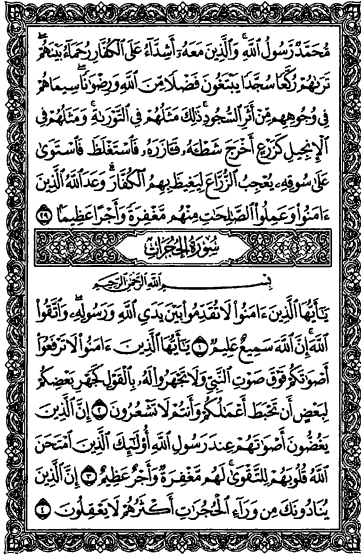 مُّحَمَّدٌ رَّسُولُ اللَّهِ ۚ وَالَّذِينَ مَعَهُ أَشِدَّاءُ عَلَى الْكُفَّارِ رُحَمَاءُ بَيْنَهُمْ ۖ
تَرَىٰهُمْ رُكَّعًا سُجَّدًا يَبْتَغُونَ فَضْلًا مِّنَ اللَّهِ وَرِضْوَٰنًا ۖ سِيمَاهُمْ
فِي وُجُوهِهِم مِّنْ أَثَرِ السُّجُودِ ۚ ذَٰلِكَ مَثَلُهُمْ فِي التَّوْرَىٰةِ ۚ وَمَثَلُهُمْ فِي
الْإِنجِيلِ كَزَرْعٍ أَخْرَجَ شَطْـَٔهُ فَـَٔازَرَهُ فَاسْتَغْلَظَ فَاسْتَوَىٰ
عَلَىٰ سُوقِهِ يُعْجِبُ الزُّرَّاعَ لِيَغِيظَ بِهِمُ الْكُفَّارَ ۗ وَعَدَ اللَّهُ الَّذِينَ
ءَامَنُوا وَعَمِلُوا الصَّٰلِحَٰتِ مِنْهُم مَّغْفِرَةً وَأَجْرًا عَظِيمًا ٢٩
سُورَةُ الْحُجُرَاتِ
بِسْمِ اللَّهِ الرَّحْمَٰنِ الرَّحِيمِ
يَٰٓأَيُّهَا الَّذِينَ ءَامَنُوا لَا تُقَدِّمُوا بَيْنَ يَدَيِ اللَّهِ وَرَسُولِهِ ۖ وَاتَّقُوا
اللَّهَ ۚ إِنَّ اللَّهَ سَمِيعٌ عَلِيمٌ ١ يَٰٓأَيُّهَا الَّذِينَ ءَامَنُوا لَا تَرْفَعُوا
أَصْوَٰتَكُمْ فَوْقَ صَوْتِ النَّبِيِّ وَلَا تَجْهَرُوا لَهُ بِالْقَوْلِ كَجَهْرِ بَعْضِكُمْ
لِبَعْضٍ أَن تَحْبَطَ أَعْمَٰلُكُمْ وَأَنتُمْ لَا تَشْعُرُونَ ٢ إِنَّ الَّذِينَ
يَغُضُّونَ أَصْوَٰتَهُمْ عِندَ رَسُولِ اللَّهِ أُولَٰٓئِكَ الَّذِينَ امْتَحَنَ
اللَّهُ قُلُوبَهُمْ لِلتَّقْوَىٰ ۚ لَهُم مَّغْفِرَةٌ وَأَجْرٌ عَظِيمٌ ٣ إِنَّ الَّذِينَ
يُنَادُونَكَ مِن وَرَاءِ الْحُجُرَٰتِ أَكْثَرُهُمْ لَا يَعْقِلُونَ ٤